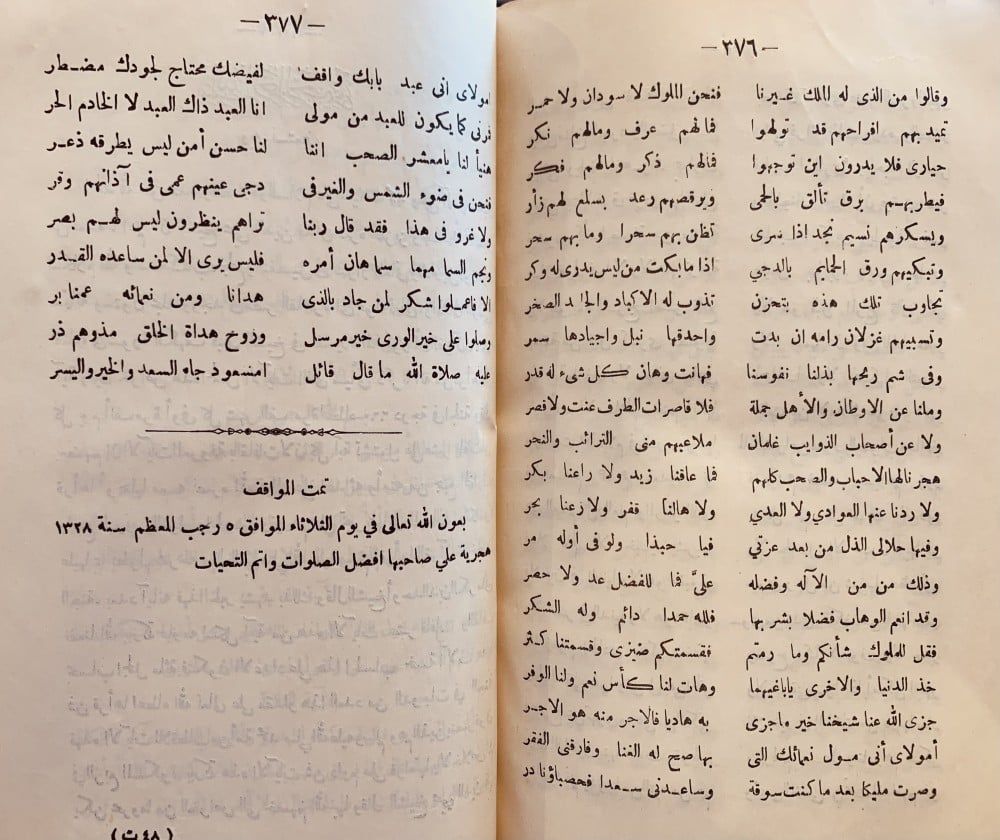 — ٣٧٦ —
وقالوا من الذى له الملك غيرنا فنحن الملوك لا سودان ولا حمر
تميد بهم افراحهم قد تولهوا فمالهم عرف ومالهم نكر
حيارى فلا يدرون اين توجهوا فمالهم ذكر ومالهم فكر
فيطربهم برق تألق بالحمى ويرقصهم رعد بسلع لهم زأر
ويسكرهم نسيم نجد اذا سرى تظن بهم سحرا وما بهم سحر
وتبكيهم ورق الحمايم بالدجي اذا ما بكت من ليس يدرى له وكر
تجاوب تلك هذه بتحزن تذوب له الاكباد والجامد الصخر
وتسبيهم غزلان رامه ان بدت واحدقها نبل واجيادها سمر
وفى شم ريحها بذلنا نفوسنا فهانت وهان كل شىء له قدر
وملنا عن الاوطان والأهل جملة فلا قاصرات الطرف عنت ولا قصر
ولا عن أصحاب الذوايب غلمان ملاعبهم منى الترائب والنحر
هجرنا لها الاحباب والصحب كلهم فما عاقنا زيد ولا راعنا بكر
ولا ردنا عنها العوادي ولا العدي ولا هالنا قفر ولا زعنا بحر
وفيها حلالى الذل من بعد عزتي فيا حبذا ولو فى أوله مر
وذلك من من الآله وفضله علىّ فما للفضل عد ولا حصر
وقد انعم الوهاب فضلا بشربها فلله حمدا دائم وله الشكر
فقل لملوك شأنكم وما رمتم فقسمتكم ضيزى وقسمتنا كثر
خذ الدنيا والاخرى ياباغيهما وهات لنا كأس نعم ولنا الوفر
جزى الله عنا شيخنا خير ما جزى به هاديا فالاجر منه هو الاجر
أمولاى أنى مول نعمائك التى بها صح له الغنا وفارقنى الفقر
وصرت مليكا بعد ما كنت سوقة وساعدنى سعدا فحصباؤنا در
— ٣٧٧ —
امولاى انى عبد بابك واقف لفيضك محتاج لجودك مضطر
فرنى كما يكون للعبد من مولى انا العبد ذاك العبد لا الخادم الحر
هنيأ لنا يامعشر الصحب اننا لنا حسن أمن ليس يطرقه ذعر
فنحن فى ضوء الشمس والغير فى دجى عينهم عمى فى آذانهم وقر
ولا غرو فى هذا فقد قال ربنا تراهم ينظرون ليس لهم بصر
ونجم السما مهما سما هان أمره فليس يرى الا لمن ساعده القدر
الا فاعملوا شكر لمن جاد بالذى هدانا ومن نعمائه عمنا بر
وصلوا على خير الورى خير مرسل وروح هداة الخلق مذوهم ذر
عليه صلاة الله ما قال قائل امسعود جاه السعد والخير واليسر
تمت المواقف
بعون الله تعالى في يوم الثلاثاء الموافق ٥ رجب المعظم سنة ١٣٢٨
هجرية علي صاحبها افضل الصلوات واتم التحيات
(٤٨ ت)